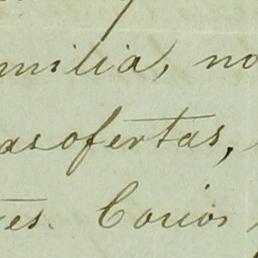 milia, no
as ofertas,
es. Corios